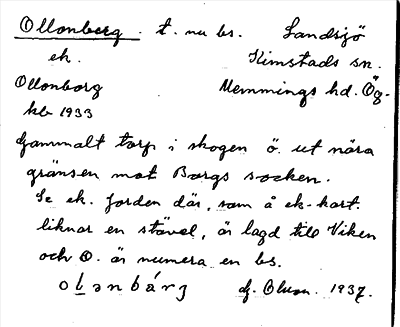 Ollonberg. t. nu bs. Landsjö
ek. Kimstads sn.
Ollonborg Memmings hd. Ög.
hb 1933
Gammalt torp i skogen ö. ut nära
gränsen mot Borgs socken.
Se ek. Jorden där, som å ek-kart.
liknar en stövel, är lagd till Viken
och O. är numera en bs.
olənbárj 1937.